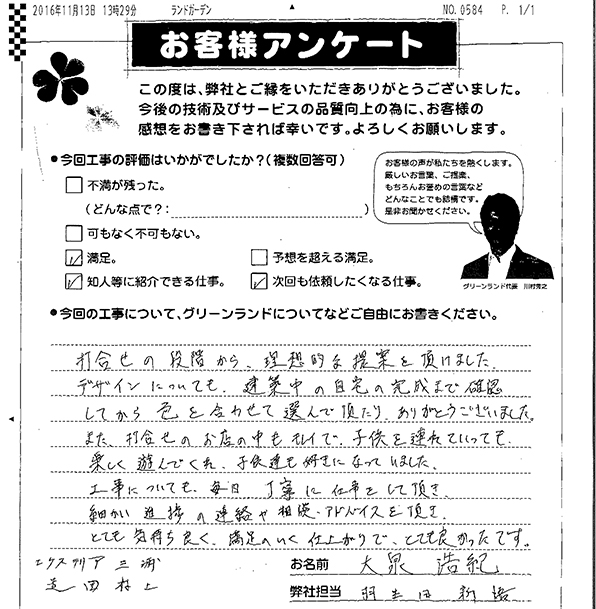 2016年11月13日 13時29分 ランドガーデン NO.0584 P. 1/1
お客様アンケート
この度は、弊社とご縁をいただきありがとうございました。
今後の技術及びサービスの品質向上の為に、お客様の
感想をお書き下されば幸いです。よろしくお願いします。
●今回工事の評価はいかがでしたか?(複数回答可)
不満が残った。
(どんな点で?: )
可もなく不可もない。
満足。 予想を超える満足。
知人等に紹介できる仕事。 次回も依頼したくなる仕事。
お客様の声が私たちを熱くします。
厳しいお言葉、ご提案、
もちろんお誉めの言葉など
どんなことでも結構です。
是非お聞かせください。
グリーンランド代表 川村秀之
●今回の工事について、グリーンランドについてなどご自由にお書きください。
打合せの段階から、理想的な提案を頂けました。
デザインについても、建築中の自宅の完成まで確認
してから色を合わせて選んで頂たり、ありがとうございました。
また、打合せのお店の中もキレイで、子供を連れていっても
楽しく遊んでくれ、子供達も好きになっていました。
工事についても、毎日丁寧に仕事をして頂き、
細かい進捗の連絡や相談・アドバイスを頂き、
とても気持ち良く、満足のいく仕上がりで、とても良かったです。
エクステリア三浦
お名前 大泉 浩紀
弊社担当